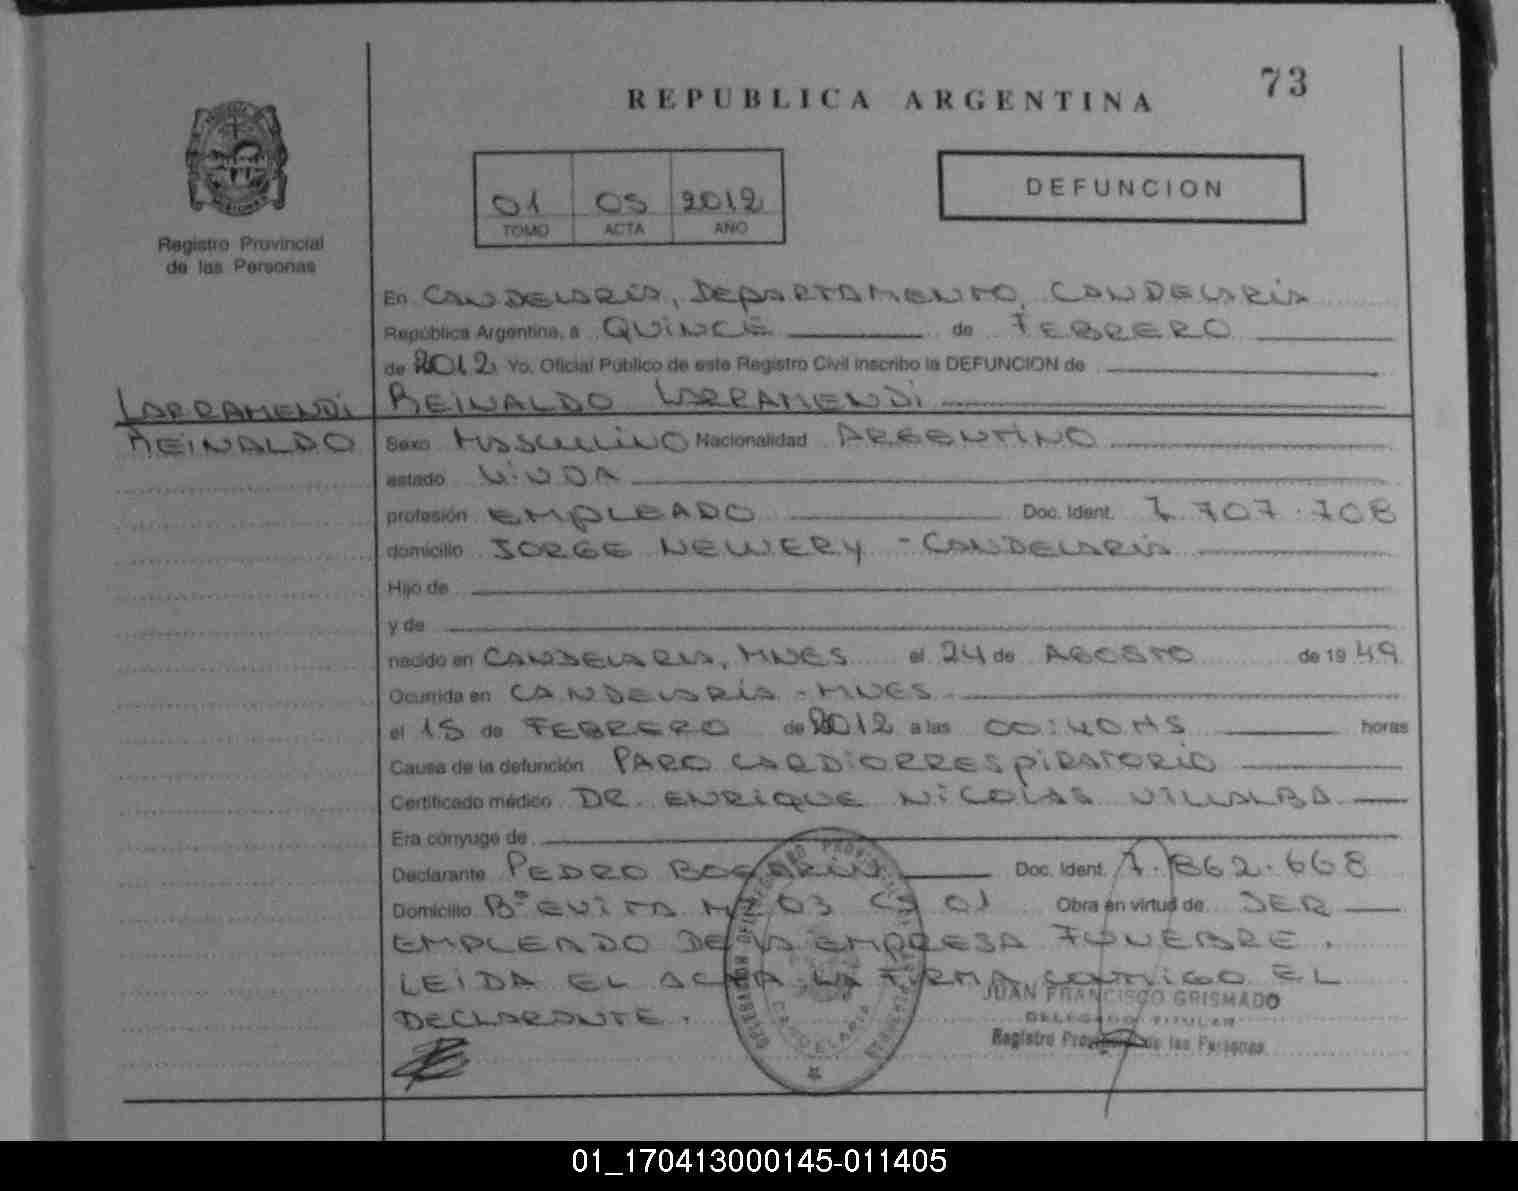 73
REPUBLICA ARGENTINA
01 05 2012
TOMO ACTA AÑO
DEFUNCION
Registro Provincial
de las Personas
En CANDELARIA, DEPARTAMENTO, CANDELARIA
República Argentina, a QUINCE de FEBRERO
de 2012 Yo, Oficial Público de este Registro Civil inscribo la DEFUNCION de
LARRAMENDI REINALDO LARRAMENDI
REINALDO Sexo MASCULINO Nacionalidad ARGENTINO
estado VIUDA
profesión EMPLEADO Doc. Ident. 7.707.708
domicilio JORGE NEWERY - CANDELARIA
Hijo de
y de
nacido en CANDELARIA, MNES el 24 de AGOSTO de 19 49
Ocurrida en CANDELARIA - MNES
el 15 de FEBRERO de 2012 a las 00:40 HS horas
Causa de la defunción PARO CARDIORRESPIRATORIO
Certificado médico DR. ENRIQUE NICOLAS VILLALBA
Era cónyuge de
Declarante PEDRO BOGARIN Doc. Ident. 7.862.668
Domicilio Bº EVITA MZ 03 CS 01 Obra en virtud de SER
EMPLEADO DE LA EMPRESA FUNEBRE.
LEIDA EL ACTA LA FIRMA CONMIGO EL
DECLARANTE.
JUAN FRANCISCO GRISMADO
DELEGADO TITULAR
Registro Provincial de las Personas
CANDELARIA
01_170413000145-011405